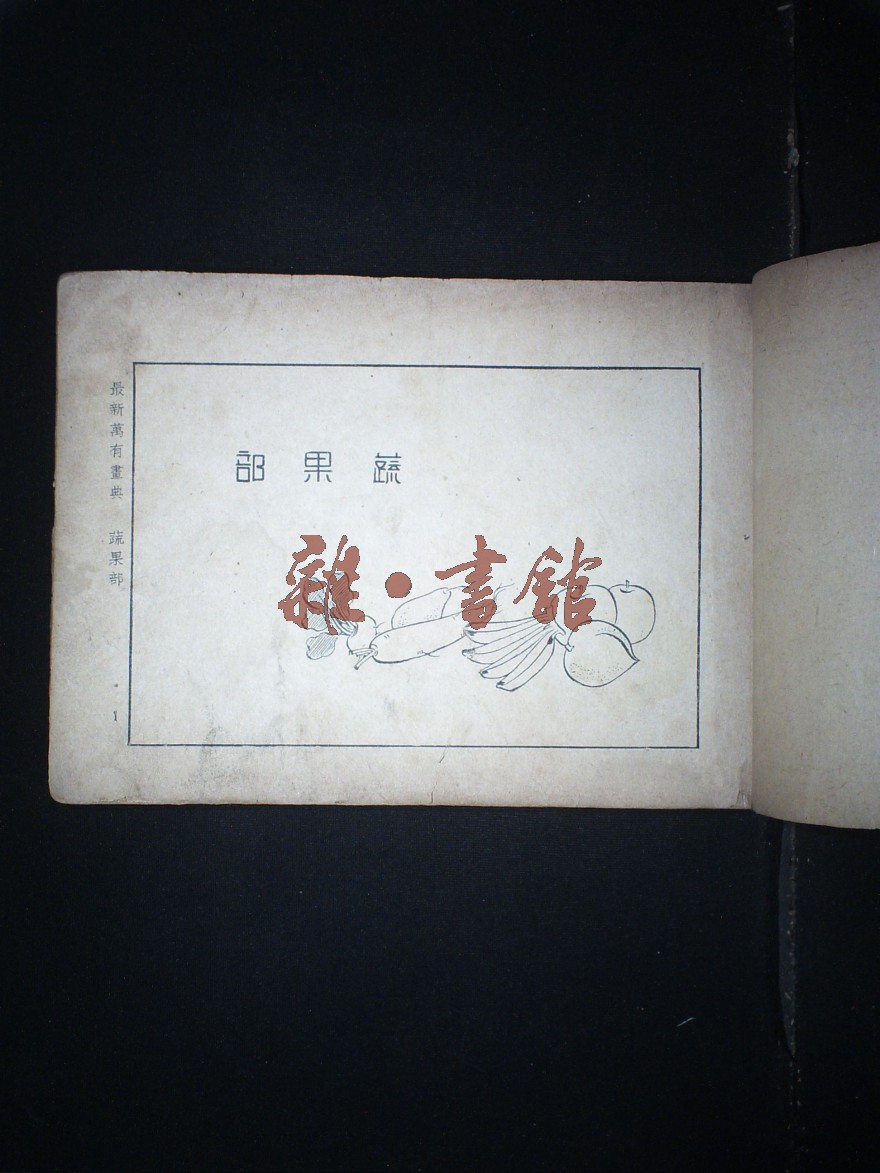 蔬果部
最新萬有畫典 蔬果部 1
雜·書館